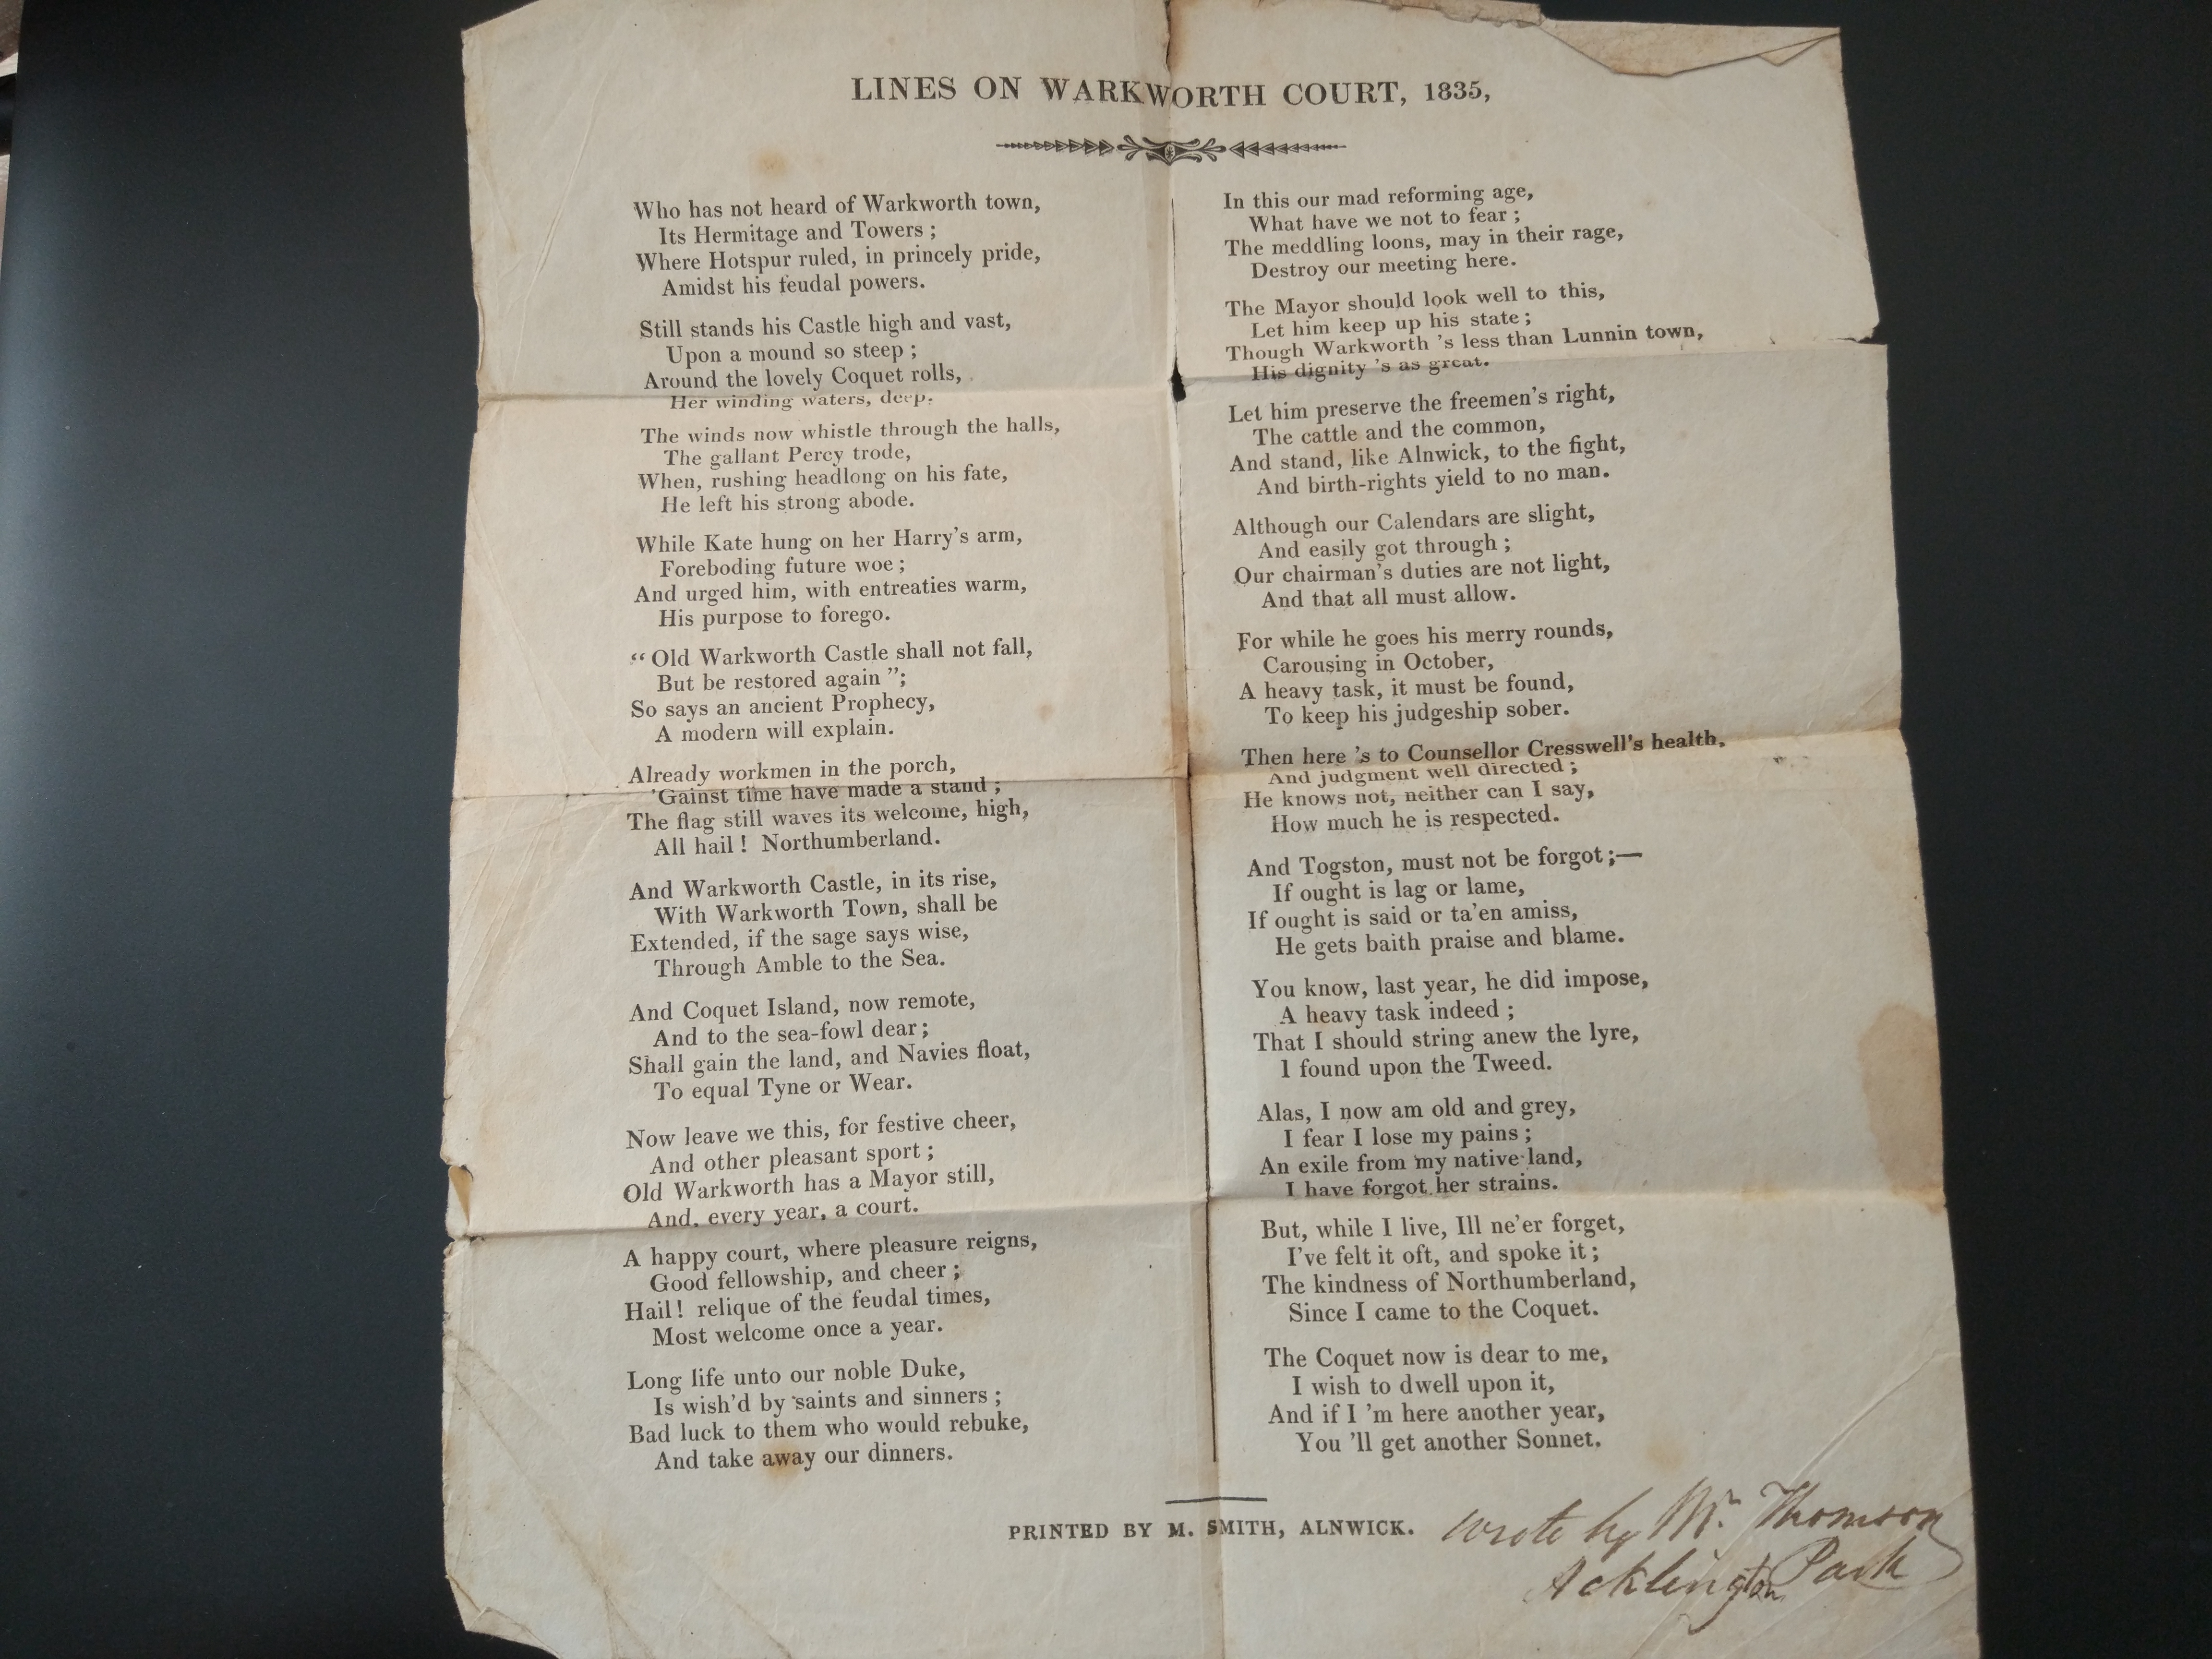 LINES ON WARKWORTH COURT, 1835,
Who has not heard of Warkworth town,
Its Hermitage and Towers ;
Where Hotspur ruled, in princely pride,
Amidst his feudal powers.
Still stands his Castle high and vast,
Upon a mound so steep ;
Around the lovely Coquet rolls,
Her winding waters, deep.
The winds now whistle through the halls,
The gallant Percy trode,
When, rushing headlong on his fate,
He left his strong abode.
While Kate hung on her Harry's arm,
Foreboding future woe ;
And urged him, with entreaties warm,
His purpose to forego.
“ Old Warkworth Castle shall not fall,
But be restored again ”;
So says an ancient Prophecy,
A modern will explain.
Already workmen in the porch,
'Gainst time have made a stand ;
The flag still waves its welcome, high,
All hail ! Northumberland.
And Warkworth Castle, in its rise,
With Warkworth Town, shall be
Extended, if the sage says wise,
Through Amble to the Sea.
And Coquet Island, now remote,
And to the sea-fowl dear ;
Shall gain the land, and Navies float,
To equal Tyne or Wear.
Now leave we this, for festive cheer,
And other pleasant sport ;
Old Warkworth has a Mayor still,
And, every year, a court.
A happy court, where pleasure reigns,
Good fellowship, and cheer ;
Hail ! relique of the feudal times,
Most welcome once a year.
Long life unto our noble Duke,
Is wish'd by saints and sinners ;
Bad luck to them who would rebuke,
And take away our dinners.
In this our mad reforming age,
What have we not to fear ;
The meddling loons, may in their rage,
Destroy our meeting here.
The Mayor should look well to this,
Let him keep up his state ;
Though Warkworth 's less than Lunnin town,
His dignity 's as great.
Let him preserve the freemen's right,
The cattle and the common,
And stand, like Alnwick, to the fight,
And birth-rights yield to no man.
Although our Calendars are slight,
And easily got through ;
Our chairman's duties are not light,
And that all must allow.
For while he goes his merry rounds,
Carousing in October,
A heavy task, it must be found,
To keep his judgeship sober.
Then here 's to Counsellor Cresswell's health,
And judgment well directed ;
He knows not, neither can I say,
How much he is respected.
And Togston, must not be forgot ;—
If ought is lag or lame,
If ought is said or ta'en amiss,
He gets baith praise and blame.
You know, last year, he did impose,
A heavy task indeed ;
That I should string anew the lyre,
I found upon the Tweed.
Alas, I now am old and grey,
I fear I lose my pains ;
An exile from my native land,
I have forgot her strains.
But, while I live, Ill ne'er forget,
I've felt it oft, and spoke it ;
The kindness of Northumberland,
Since I came to the Coquet.
The Coquet now is dear to me,
I wish to dwell upon it,
And if I 'm here another year,
You 'll get another Sonnet.
PRINTED BY M. SMITH, ALNWICK.
wrote by Mr. Thomson
Acklington Park